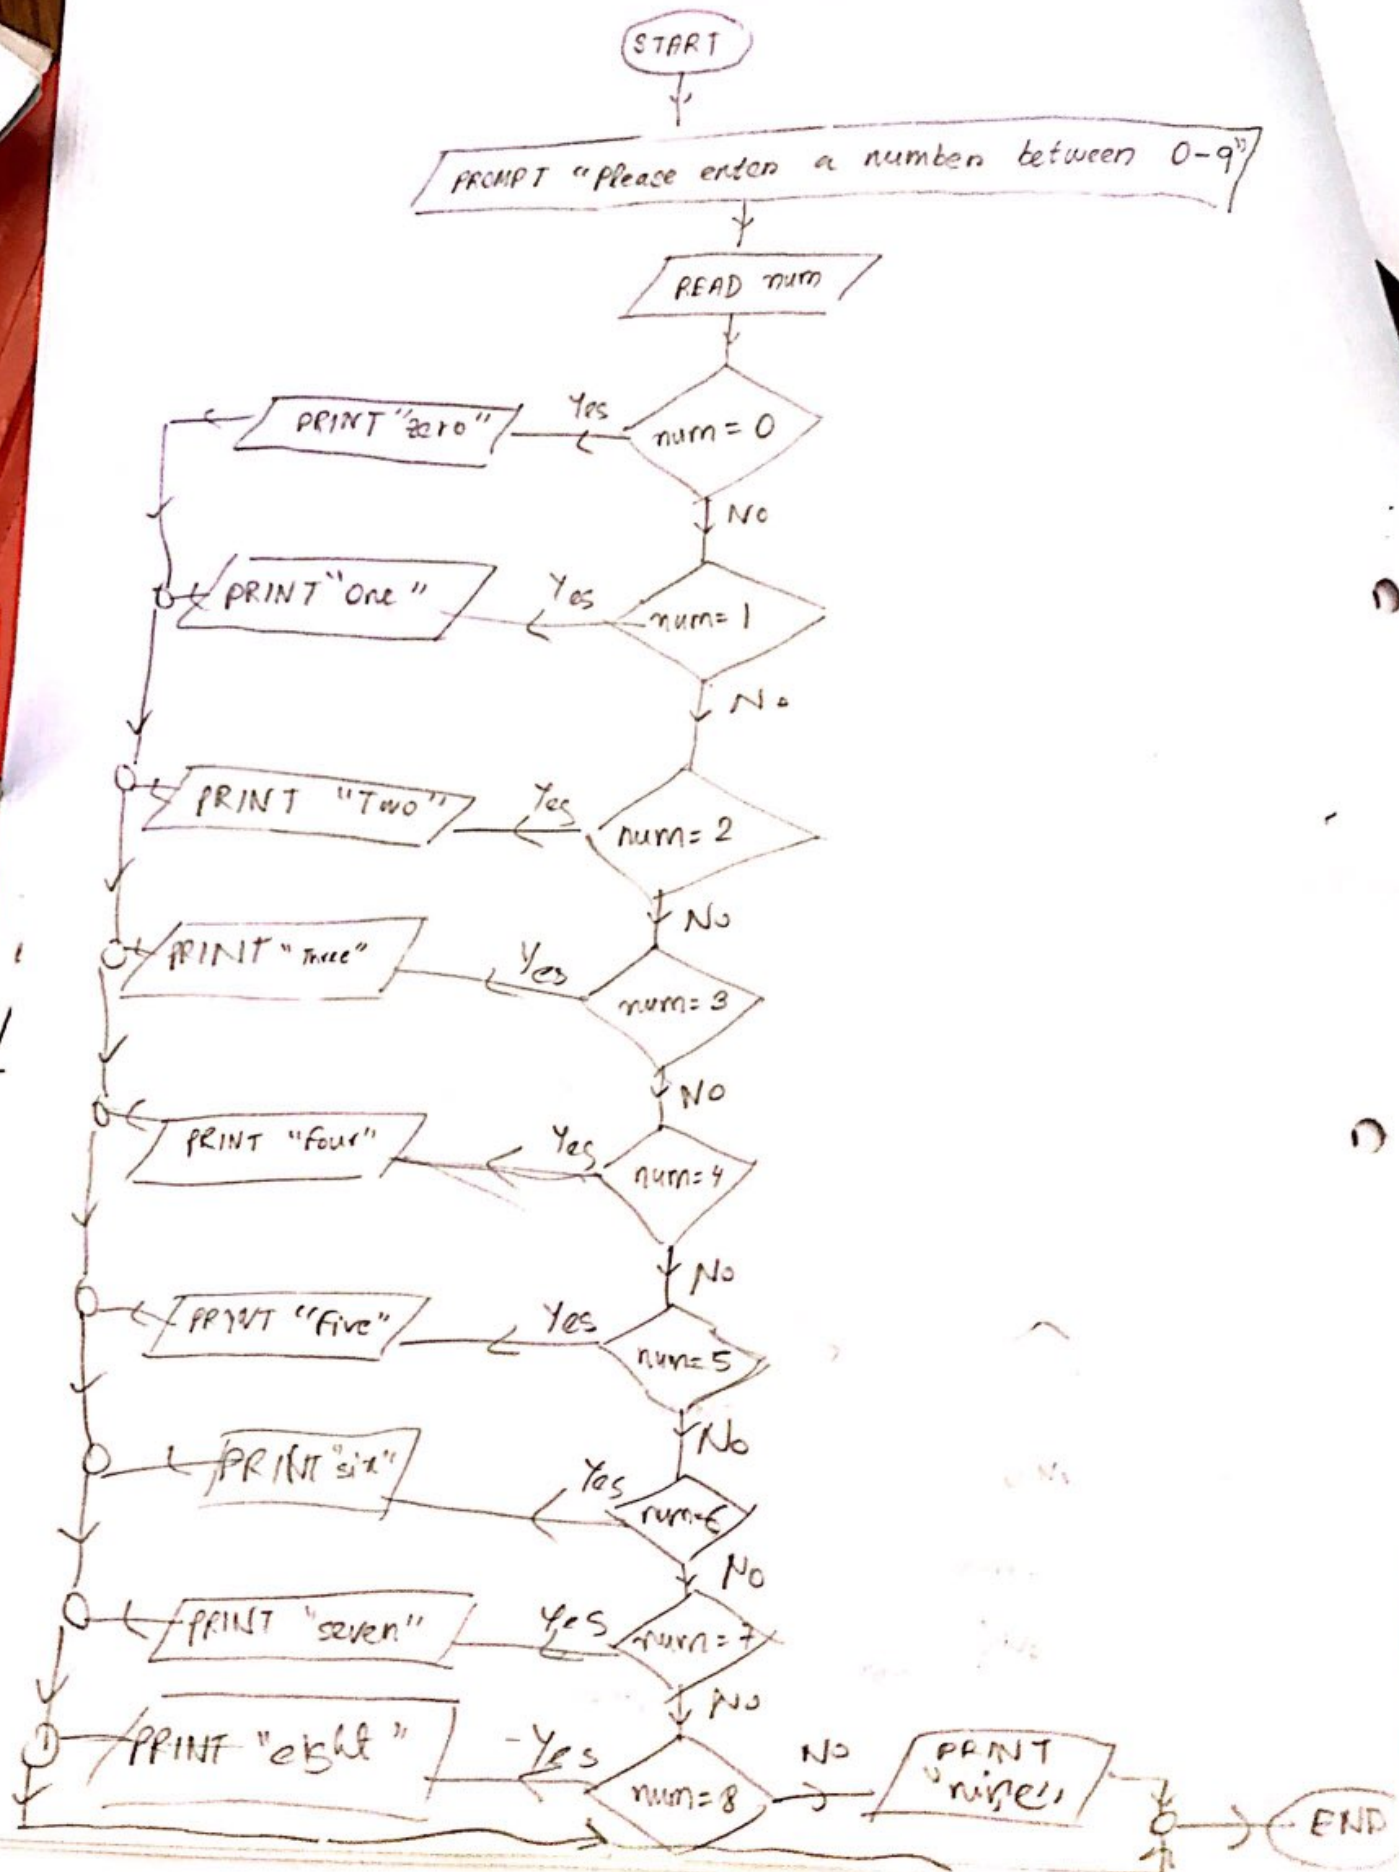 START
PROMPT "Please enter a number between 0-9"
READ num
PRINT "zero" Yes num = 0
No
PRINT "One" Yes num = 1
No
PRINT "Two" Yes num = 2
No
PRINT "Three" Yes num = 3
No
PRINT "Four" Yes num = 4
No
PRINT "Five" Yes num = 5
No
PRINT "six" Yes num = 6
No
PRINT "seven" Yes num = 7
No
PRINT "eight" Yes num = 8 No PRINT
"nine"
END